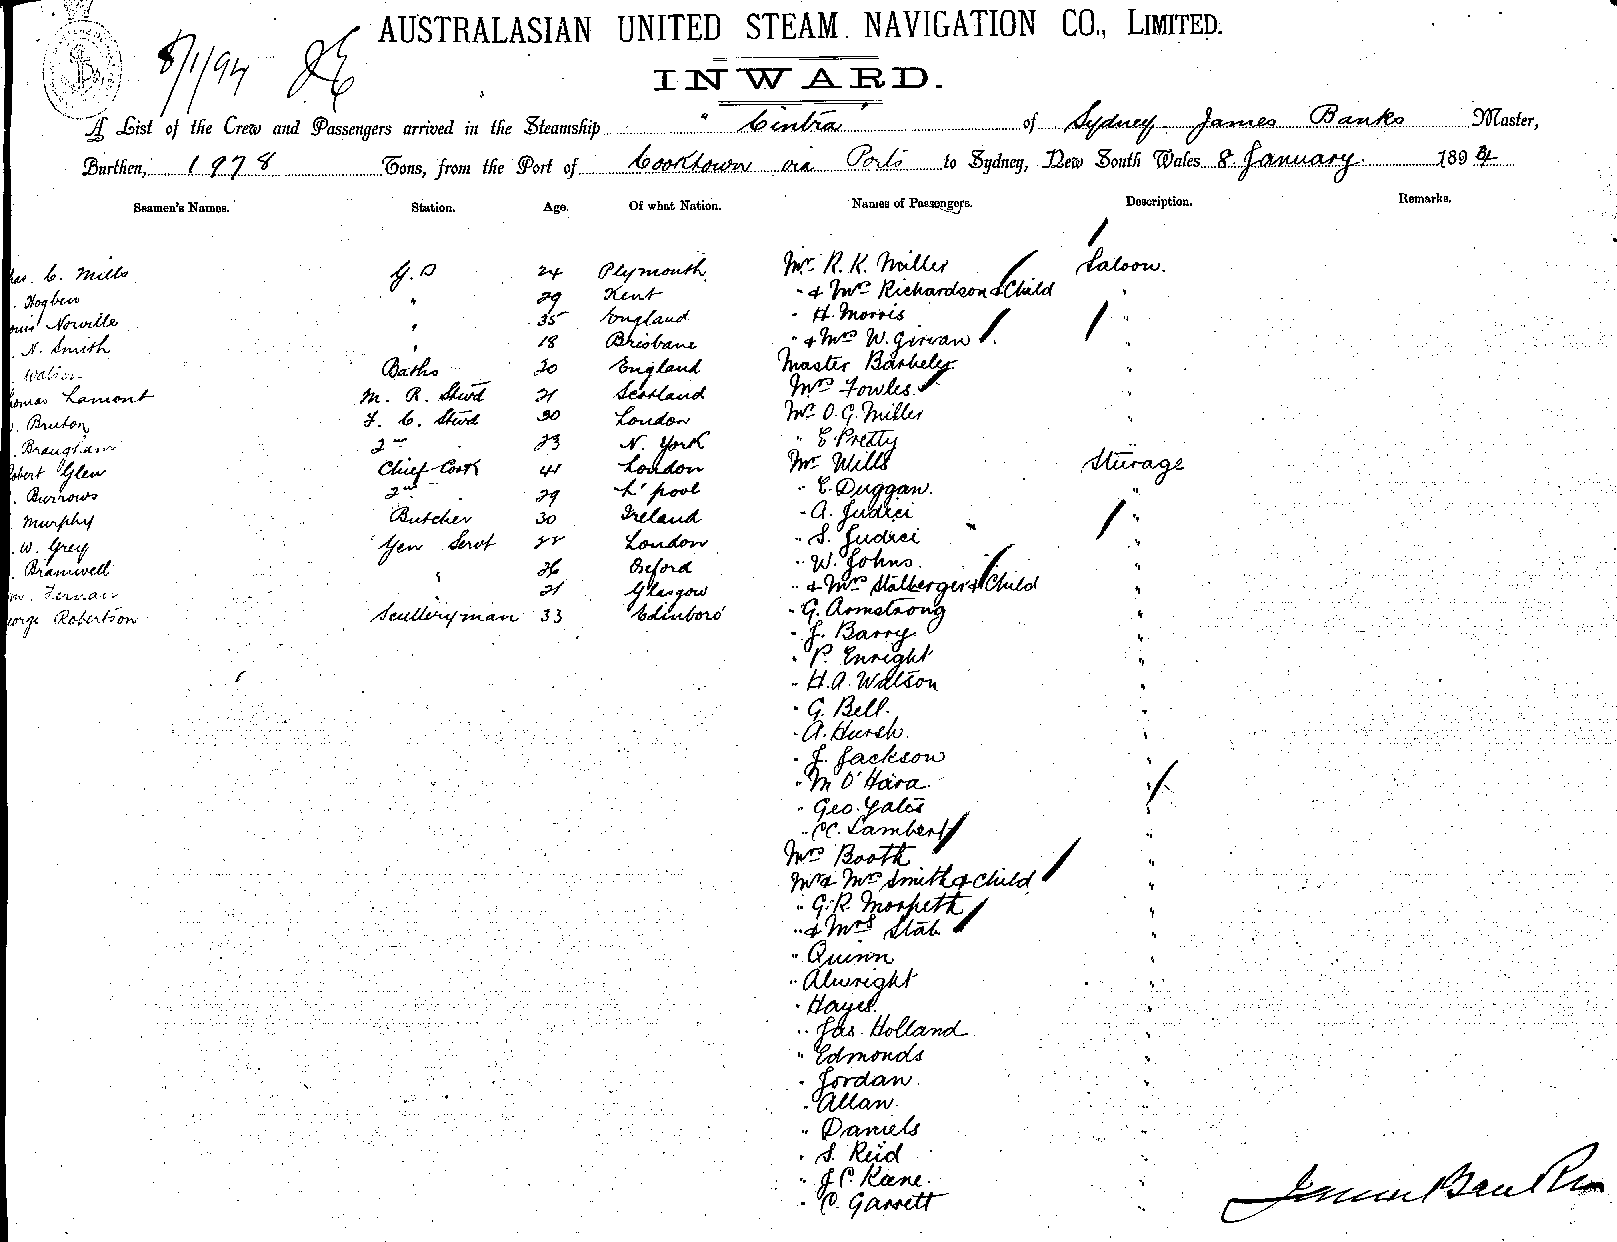 AUSTRALASIAN UNITED STEAM NAVIGATION CO., LIMITED.
8/1/94
INWARD.
A List of the Crew and Passengers arrived in the Steamship "Cintra" of Sydney James Banks Master,
Burthen, 1978 Tons, from the Port of Cooktown via Ports to Sydney, New South Wales 8 January 1894
Seamen's Names. Station. Age. Of what Nation. Names of Passengers. Description. Remarks.
C. Mills G.S 24 Plymouth Mr R. K. Miller Saloon.
Hogben " 29 Kent " & Mrs Richardson & Child "
Norville " 35 England " H. Morris "
N. Smith " 18 Brisbane " & Mrs W. Girvan "
Watson Baths 20 England Master Barbeler "
Lamont M. R. Stwd 21 Scotland Mrs Fowles "
Bruton F. C. Stwd 30 London Mr O. G. Miller "
Brangham 2nd 23 N. York " E Pretty "
Glen Chief Cook 41 London Mr Wills Sturage
Burrows 2nd 29 L'pool " E. Duggan. "
Murphy Butcher 30 Ireland " A. Judici "
W. Greig Gen Servt 22 London " S. Judici "
Bramwell " 26 Oxford " W. Johns. "
21 Glasgow " & Mrs Stalberger & Child "
Robertson Sculleryman 33 Edinboro' " G. Armstrong "
" J. Barry "
" P. Enright "
" H. A. Watson "
" G. Bell. "
" A. Hursh. "
" J. Jackson "
" M O'Hara. "
" Geo. Yates "
" CC. Lambert "
Mrs Booth "
Mr & Mrs Smith & Child "
" G. R. Morpeth "
" & Mrs Stab "
" Quinn "
" Alwright "
" Hayes. "
" Jas. Holland "
" Edmonds "
" Jordan. "
" Allan. "
" Daniels "
" S. Reid "
" J P. Keene. "
" C. Garrett "
James Banks